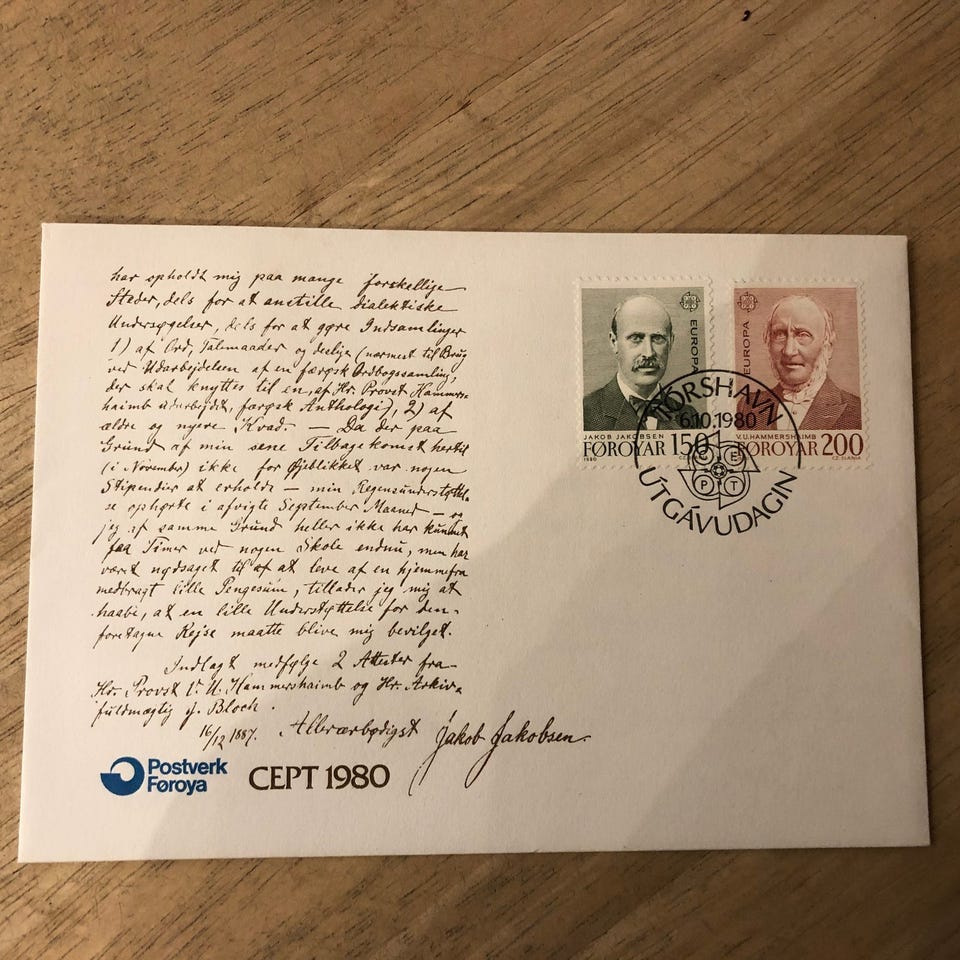 har opholdt mig paa mange forskellige
Steder, dels for at anstille dialektiske
Undersøgelser, dels for at gøre Indsamlinger
1) af Ord, Talemaader og desligе (nærmest til Brug
ved Udarbejdelsen af en færøsk Ordbogssamling,
der skal knyttes til en, af Hr. Provst Hammers-
haimb udarbejdet, færøsk Anthologi), 2) af
ældre og nyere Kvad. — Da der paa
Grund af min sene Tilbagekomst hertil
(i November) ikke for Øjeblikket var nogen
Stipendier at erholde — min Regensunderstøttel-
se ophørte i afvigte September Maaned — og
jeg af samme Grund heller ikke har kunnet
faa Timer ved nogen Skole endnu, men har
været nødsaget til at leve af en hjemmefra
medbragt lille Pengesum, tillader jeg mig at
haabe, at en lille Understøttelse for den
foretagne Rejse maatte blive mig bevilget.
Indlagt medfølge 2 Attester fra
Hr. Provst V. U. Hammershaimb og Hr. Arkiv-
fuldmægtig J. Bloch.
16/12 1887. Allerærbødigst Jakob Jakobsen.
Postverk
Føroya
CEPT 1980
EUROPA
JAKOB JAKOBSEN
FØROYAR 150
1980
CZ. SLANIA
EUROPA
V.U. HAMMERSHAIMB
FØROYAR 200
CZ. SLANIA
TÓRSHAVN
6.10.1980
CEPT
ÚTGÁVUDAGIN